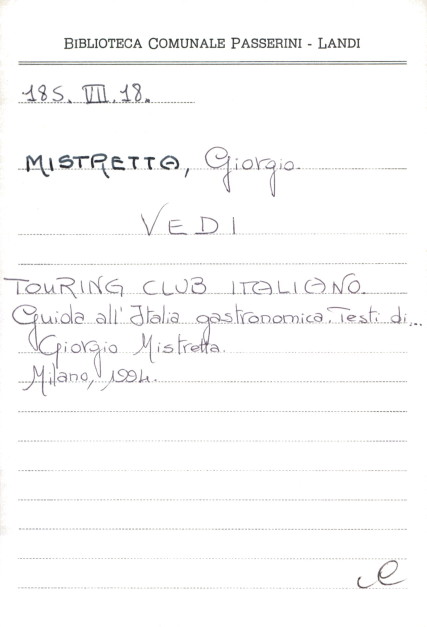 BIBLIOTECA COMUNALE PASSERINI - LANDI
185. VII. 18.
MISTRETTA, Giorgio.
VEDI
TOURING CLUB ITALIANO.
Guida all'Italia gastronomica. Testi di...
Giorgio Mistretta.
Milano, 1994.
e